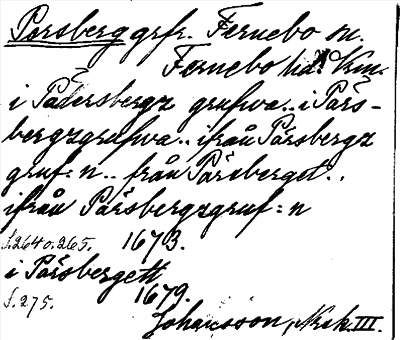 Persberg grfr. Fernebo sn.
Fernebo hd. Vrm.
i Pätersbergz grufwa.. i Pärs-
bergzgrufwa.. ifrån Pärsbergz
gruf:n.. från Pärsberget..
ifrån Pärsbergzgruf:n
S.264 o. 265. 1673.
i Pärsbergett
S. 275. 1679.
Johansson, Nork III.